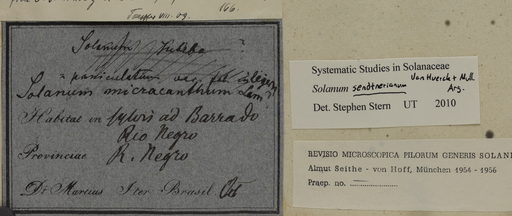 166.
Solanum Jurieba
paniculatum var.
Solanum micracanthum Lam?
Habitat in sylvis ad Barra do
Rio Negro
Provinciae R. Negro
Dr Marcius Iter Brasil
Systematic Studies in Solanaceae
Solanum sendtnerianum Van Heurck & Müll. Arg.
Det. Stephen Stern UT 2010
REVISIO MICROSCOPICA PILORUM GENERIS SOLANI
Almut Seithe - von Hoff, München 1954 - 1956
Praep. no.